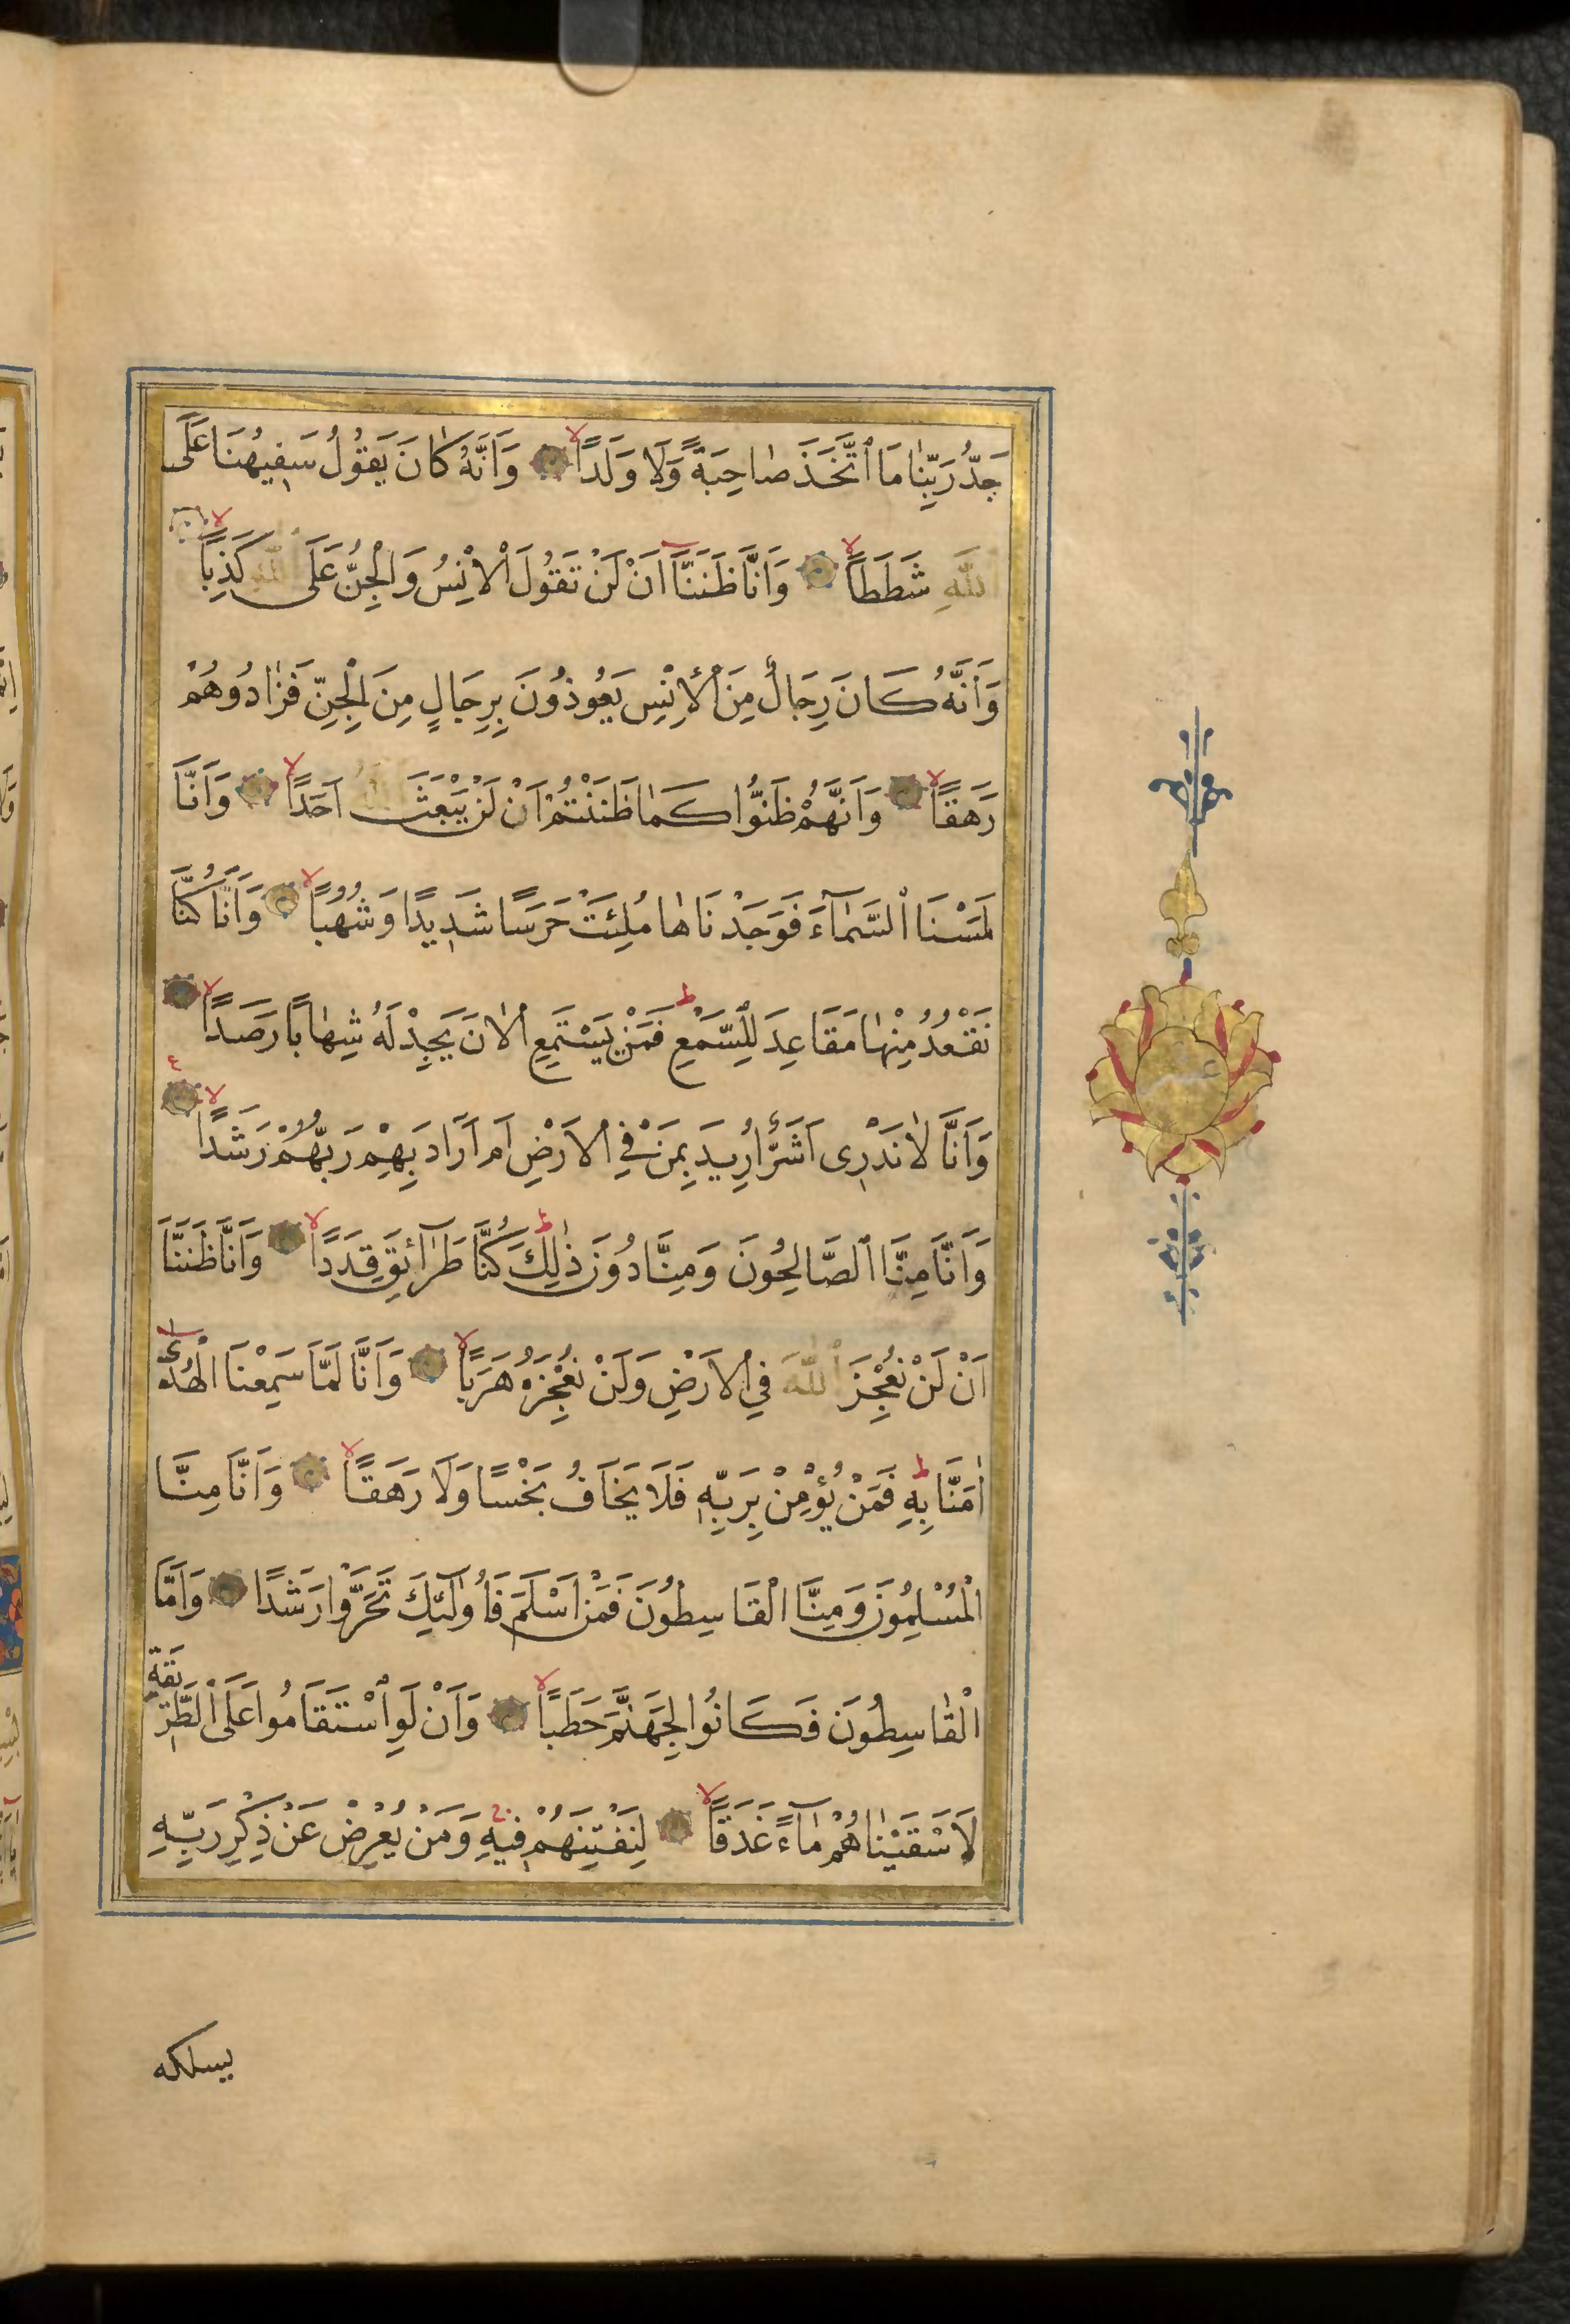 جَدُّ رَبِّنٰا مَا ٱتَّخَذَ صٰاحِبَةً وَلَا وَلَدًا وَاَنَّهُ كٰانَ يَقُولُ سَفِيهُنَا عَلَى
ٱللّٰهِ شَطَطاً وَاَنَّا ظَنَنَّا اَنْ لَنْ تَقُولَ ٱلْاِنْسُ وَالْجِنُّ عَلَى ٱللّٰهِ كَذِبًا
وَاَنَّهُ كَانَ رِجَالٌ مِنَ ٱلْإِنْسِ يَعُوذُونَ بِرِجَالٍ مِنَ الْجِنِّ فَزٰادُوهُمْ
رَهَقًا وَاَنَّهُمْ ظَنُّوا كَمٰا ظَنَنْتُمْ اَنْ لَنْ يَبْعَثَ ٱللّٰهُ اَحَدًا وَاَنَّا
لَمَسْنَا ٱلسَّمٰٓاءَ فَوَجَدْنَاهٰا مُلِئَتْ حَرَسًا شَدِيدًا وَشُهُبًا وَاَنَّا كُنَّا
نَقْعُدُ مِنْهٰا مَقَاعِدَ لِلسَّمْعِ فَمَنْ يَسْتَمِعِ ٱلْاٰنَ يَجِدْ لَهُ شِهٰابًا رَصَدًا
وَاَنَّا لٰا نَدْرِى اَشَرٌّ اُرِيدَ بِمَنْ فِي ٱلْاَرْضِ اَمْ اَرَادَ بِهِمْ رَبُّهُمْ رَشَدًا
وَاَنَّا مِنَّا ٱلصَّالِحُونَ وَمِنَّا دُونَ ذٰلِكَ كُنَّا طَرَآئِقَ قِدَدًا وَاَنَّا ظَنَنَّا
اَنْ لَنْ نُعْجِزَ ٱللّٰهَ فِي ٱلْاَرْضِ وَلَنْ نُعْجِزَهُ هَرَبًا وَاَنَّا لَمَّا سَمِعْنَا الْهُدٰٓى
اٰمَنَّا بِهِ فَمَنْ يُؤْمِنْ بِرَبِّهِ فَلَا يَخَافُ بَخْسًا وَلَا رَهَقًا وَاَنَّا مِنَّا
الْمُسْلِمُونَ وَمِنَّا الْقَاسِطُونَ فَمَنْ اَسْلَمَ فَأُولٰٓئِكَ تَحَرَّوْا رَشَدًا وَاَمَّا
الْقٰاسِطُونَ فَكَانُوا لِجَهَنَّمَ حَطَبًا وَاَنْ لَوِ ٱسْتَقَامُوا عَلَى ٱلطَّرِيقَةِ
لَاَسْقَيْنٰاهُمْ مٰآءً غَدَقًا لِنَفْتِنَهُمْ فِيهِ وَمَنْ يُعْرِضْ عَنْ ذِكْرِ رَبِّهِ
يسلكه